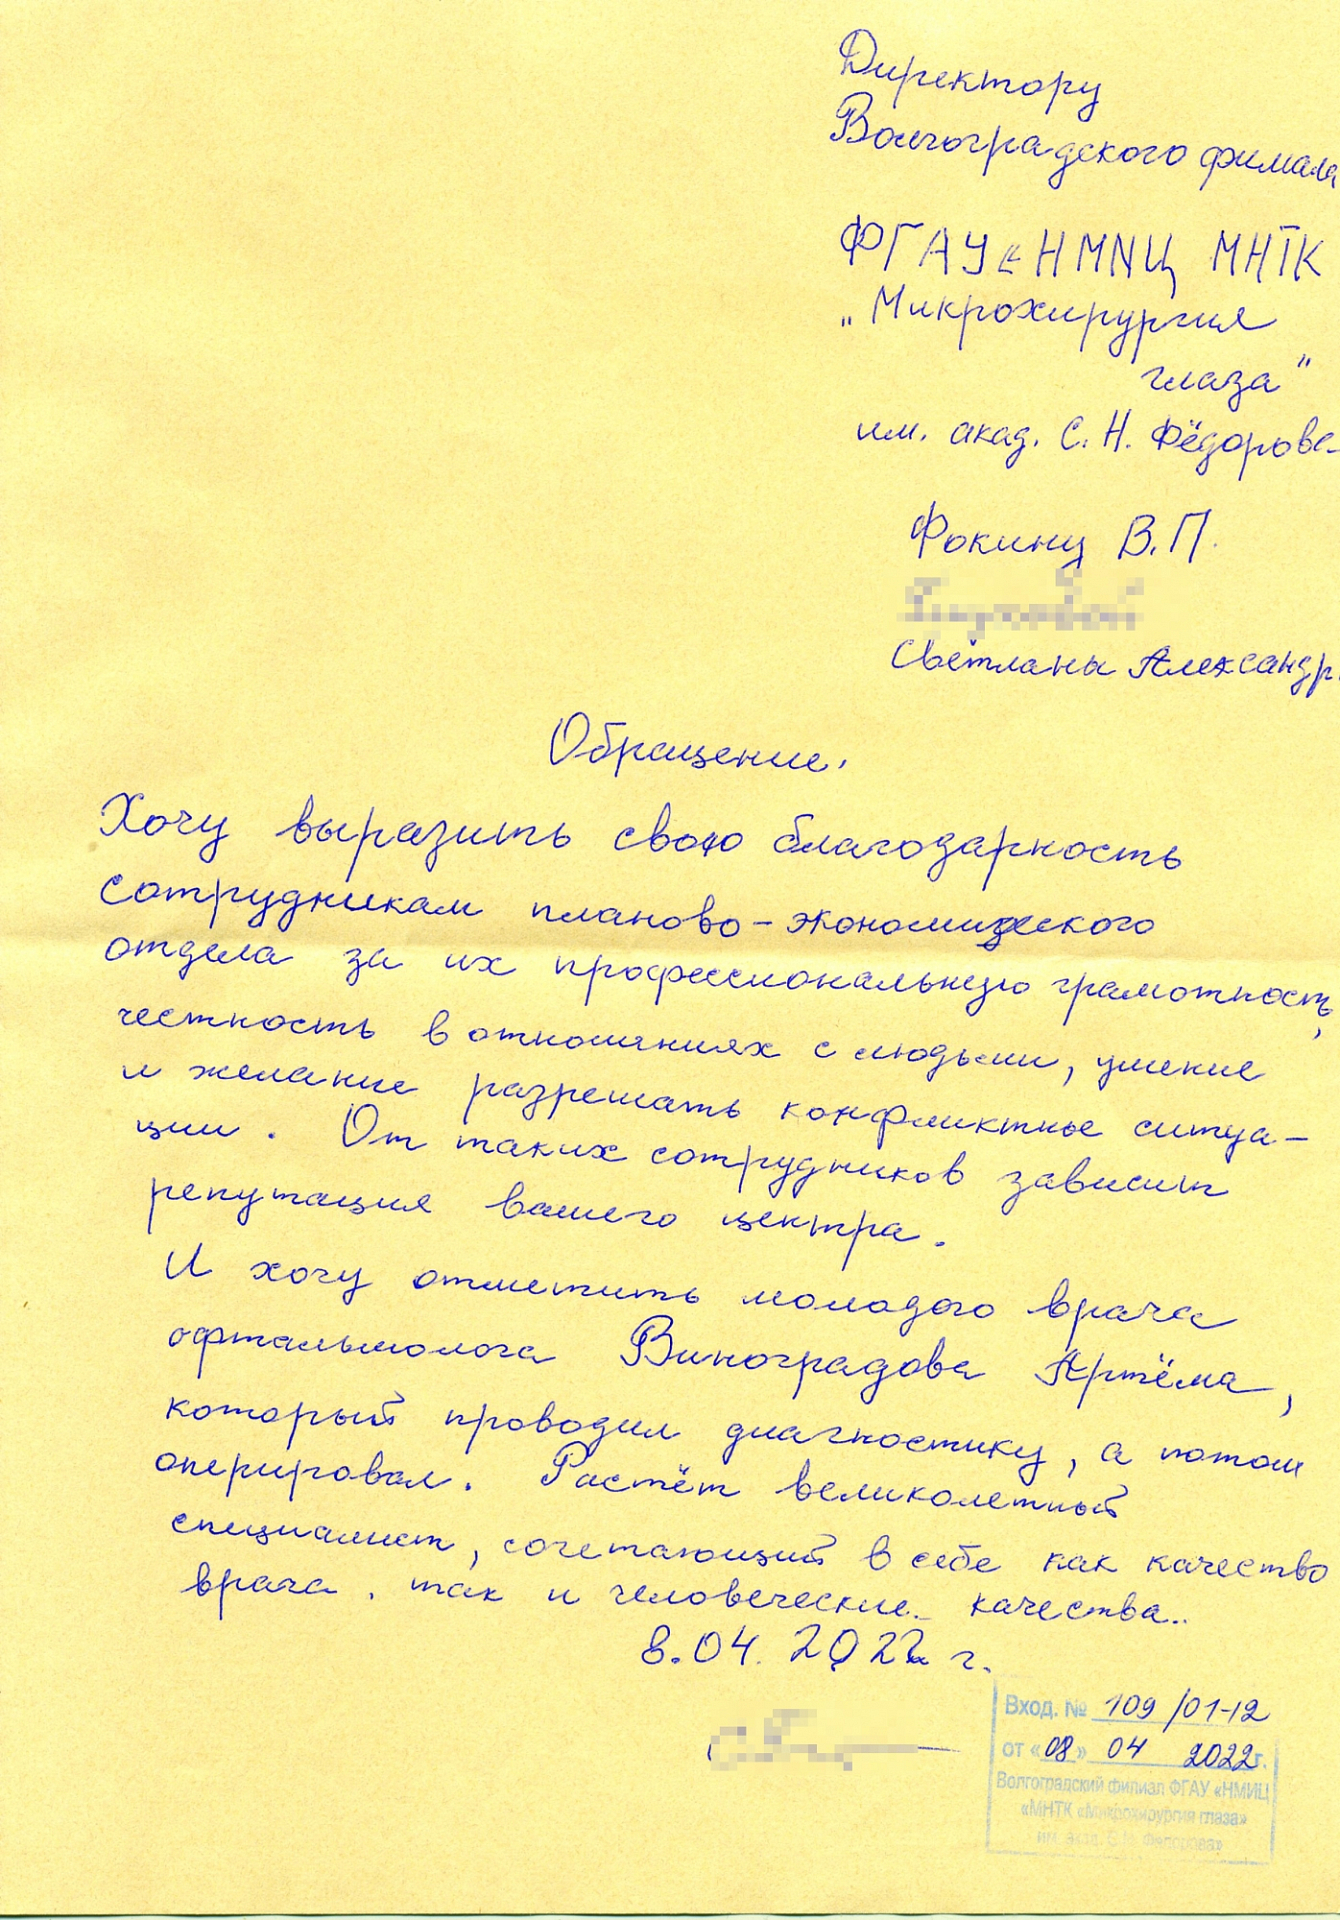 Директору
Волгоградского филиала
ФГАУ «НМИЦ МНТК
„Микрохирургия
глаза"
им. акад. С. Н. Фёдорова
Фокину В. П.
Светланы Александр
Обращение.
Хочу выразить свою благодарность
сотрудникам планово-экономического
отдела за их профессиональную грамотность,
честность в отношениях с людьми, умение
и желание разрешать конфликтные ситуа-
ции. От таких сотрудников зависит
репутация вашего центра.
И хочу отметить молодого врача
офтальмолога Виноградова Артёма,
который проводил диагностику, а потом
оперировал. Растёт великолепный
специалист, сочетающий в себе как качество
врача, так и человеческие качества..
8.04.2022 г.
Вход. № 109/01-12
от «08» 04 2022 г.
Волгоградский филиал ФГАУ «НМИЦ
«МНТК «Микрохирургия глаза»
им. акад. С.Н. Федорова»